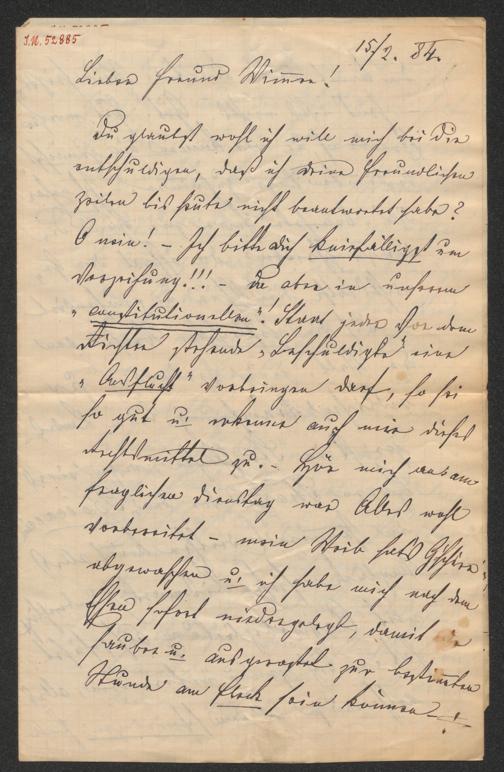 I.N. 52885
15/2. 84.
Lieber Freund Wimmer!
Du glaubst wohl ich will mich bei Dir
entschuldigen, daß ich deine freundlichen
Zeilen bis heute nicht beantwortet habe?
O nein! – Ich bitte dich kniefälligst um
Verzeihung!!! – da aber in unserem
„constitutionellen“! Staat jeder vor dem
Richter stehende „Beschuldigte“ eine
„Ausflucht“ vorbringen darf, so sei
so gut u. erkenne auch mir dieses
Rechtsmittel zu. – Hör mich an: am
fraglichen Dienstag war Alles wohl
vorbereitet – mein Weib hat's Gschirr
abgewaschen u. ich habe mich nach dem
Essen sofort niedergelegt, damit ich
sauber u. ausgerastet zur bestimten
Stunde am Fleck sein können